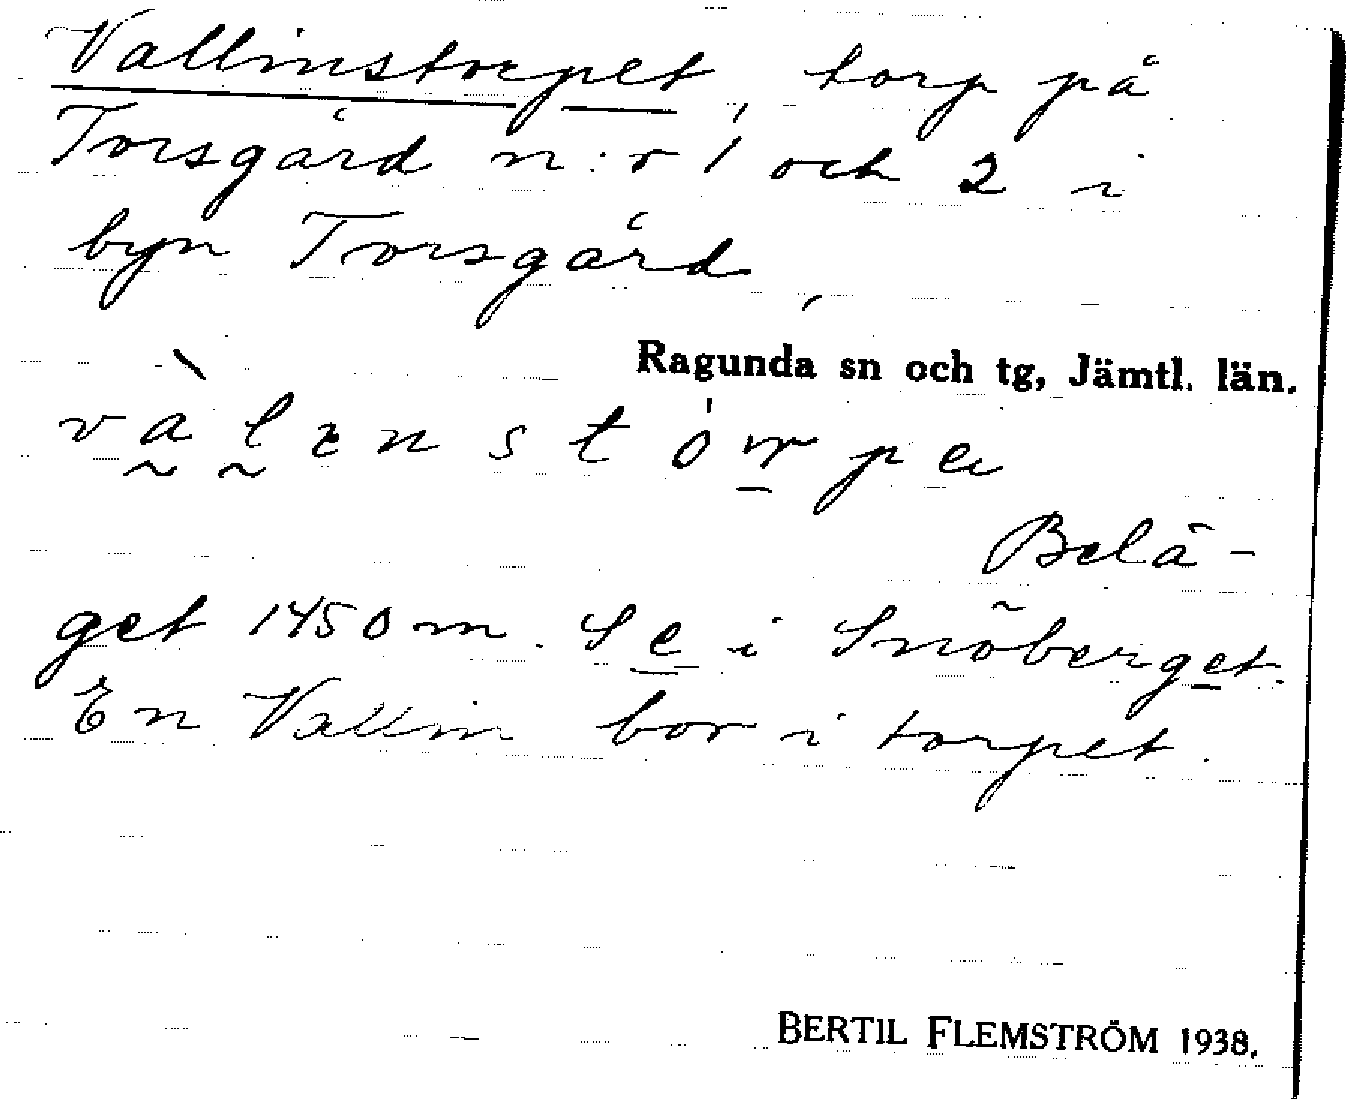 Vallinstorpet, torp på
Torsgård n:r 1 och 2 i
byn Torsgård,
Ragunda sn och tg, Jämtl. län.
Belä-
get 1450 m. S e i Snöberget.
En Vallin bor i torpet.
BERTIL FLEMSTRÖM 1938.